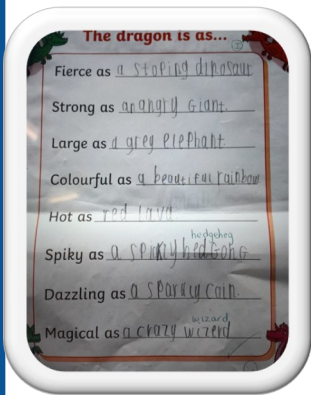 The dragon is as...
Fierce as a stoping dinosaur
Strong as an angry Giant.
Large as a grey elephant
Colourful as a beautiful rainbow
Hot as red lava
hedgehog
Spiky as a spikly hedgong
Dazzling as a sparkly coin.
wizard
Magical as a crazy wizerd